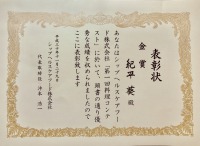 表彰状
金賞
紀平 英 殿
あなたはシップヘルスケアフー
ド株式会社「第一回料理コンテ
スト」に於いて、頭書の通り優
秀な成績を収められましたので
ここに表彰致します
シップヘルスケアフード株式会社
代表取締役